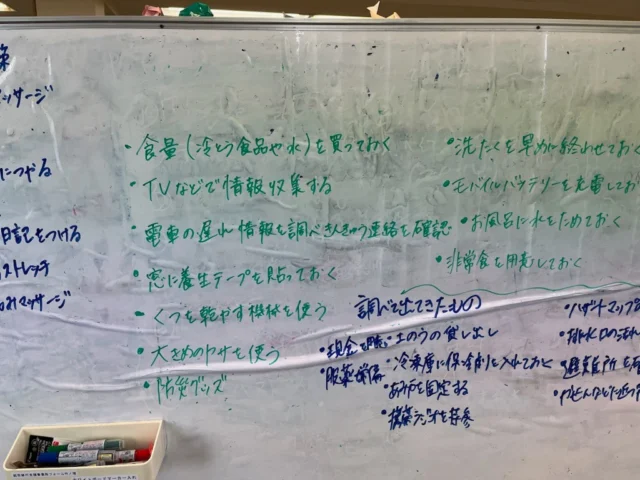 策
ッサージ
につかる
日記をつける
ストレッチ
マッサージ
・食量(冷とう食品や水)を買っておく
・TVなどで情報収集する
・電車の遅れ情報を調べきんきゅう連絡を確認
・窓に養生テープを貼っておく
・くつを乾やす機械を使う
・大きめのカサを使う
・防災グッズ
・洗たくを早めに終わせておく
・モバイルバッテリーを充電してお
・お風呂に水をためておく
・非常食を用意しておく
調べて出てきたもの
・現金を用意
・服薬準備
・土のうの貸し出し
・冷凍庫に保冷剤を入れておく
・あみ戸を固定する
・携帯ラジオを持参
・ハザードマップ
・排水口の流れ
・避難所を